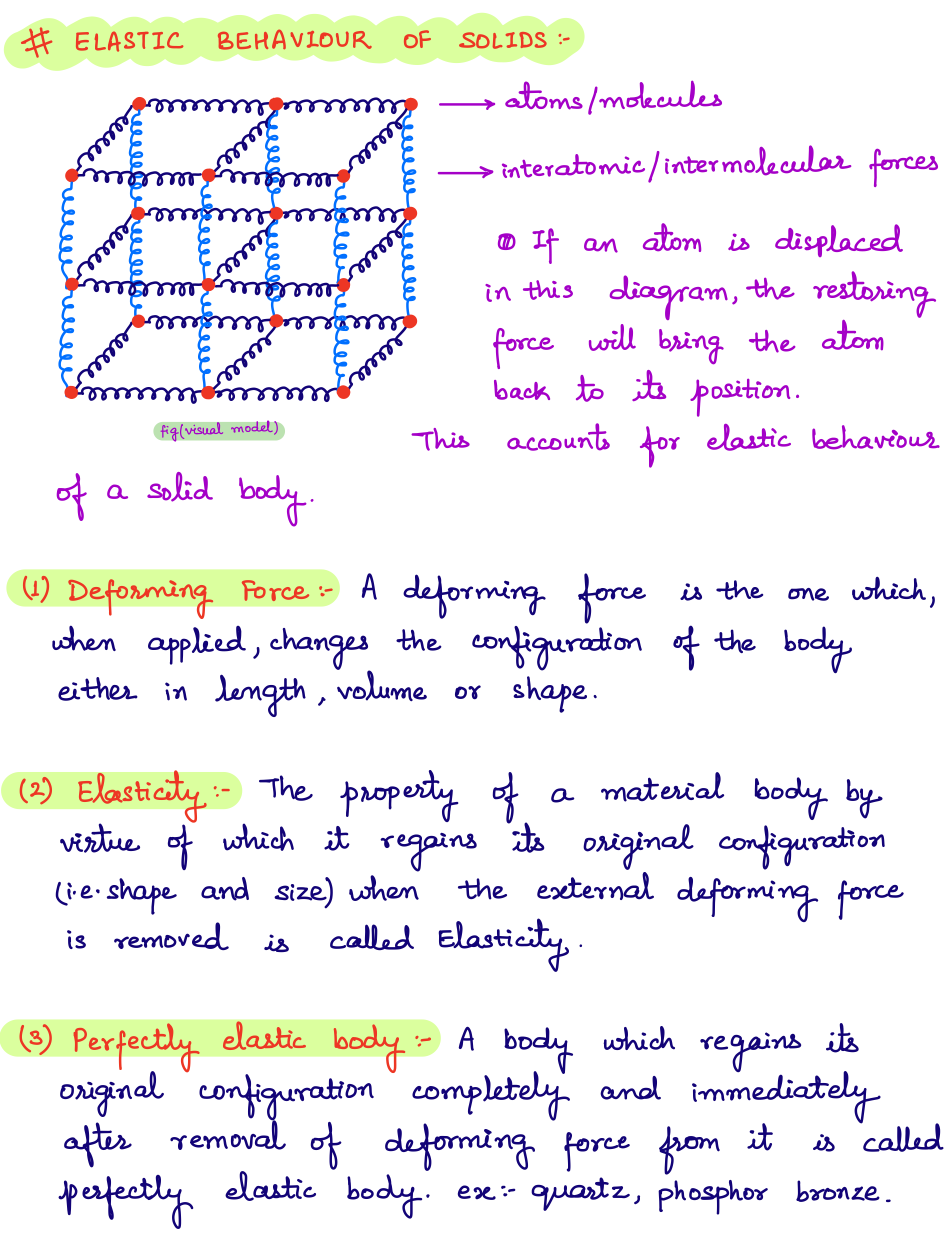 # ELASTIC BEHAVIOUR OF SOLIDS :-
→ atoms/molecules
→ interatomic/intermolecular forces
If an atom is displaced
in this diagram, the restoring
force will bring the atom
back to its position.
fig(visual model)
This accounts for elastic behaviour
of a solid body.
(1) Deforming Force :- A deforming force is the one which,
when applied, changes the configuration of the body
either in length, volume or shape.
(2) Elasticity :- The property of a material body by
virtue of which it regains its original configuration
(i.e. shape and size) when the external deforming force
is removed is called Elasticity.
(3) Perfectly elastic body :- A body which regains its
original configuration completely and immediately
after removal of deforming force from it is called
perfectly elastic body. ex:- quartz, phosphor bronze.